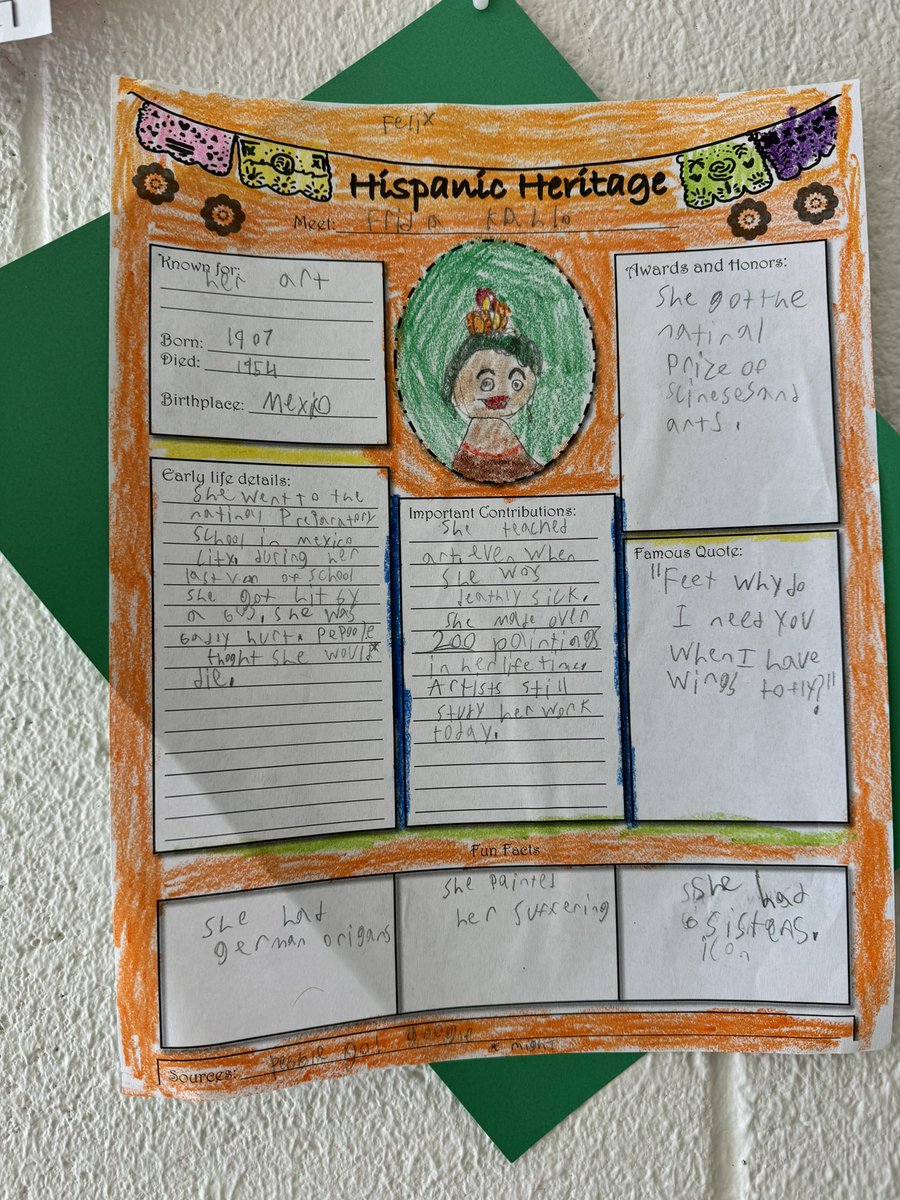 Felix
Hispanic Heritage
Meet: Frida Kahlo
Known for:
her art
Born: 1907
Died: 1954
Birthplace: Mexico
Early life details:
She went to the
natinal Preparatory
School in mexico
City. during her
last of school
she got hit by
a bus, she was
badly hurt. Pepople
thoght she would
die.
Important Contributions:
She teached
art even when
she was
deathly sick.
She made over
200 paintings
in her life time.
Artists still
study her work
today.
Awards and Honors:
She got the
natinal
Prize of
scinesesand
arts.
Famous Quote:
"Feet why do
I need you
when I have
wings to fly?"
Fun Facts
She had
german origans
She painted
her suffering
She had
6 sisters.
icon
Sources: Pebble Go, google